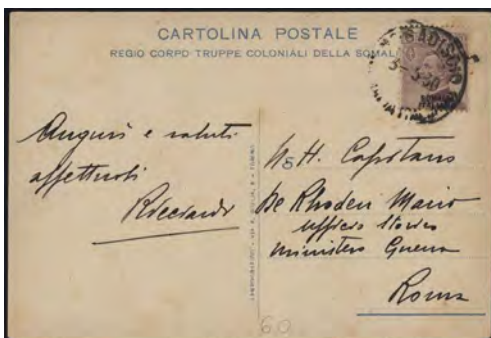 CARTOLINA POSTALE
REGIO CORPO TRUPPE COLONIALI DELLA SOMAL
MOGADISCIO
Auguri e saluti
affettuosi
Ricciardi
N H. Capitano
De Rhoden Mario
Ufficio Storico
Ministero Guerra
Roma
60